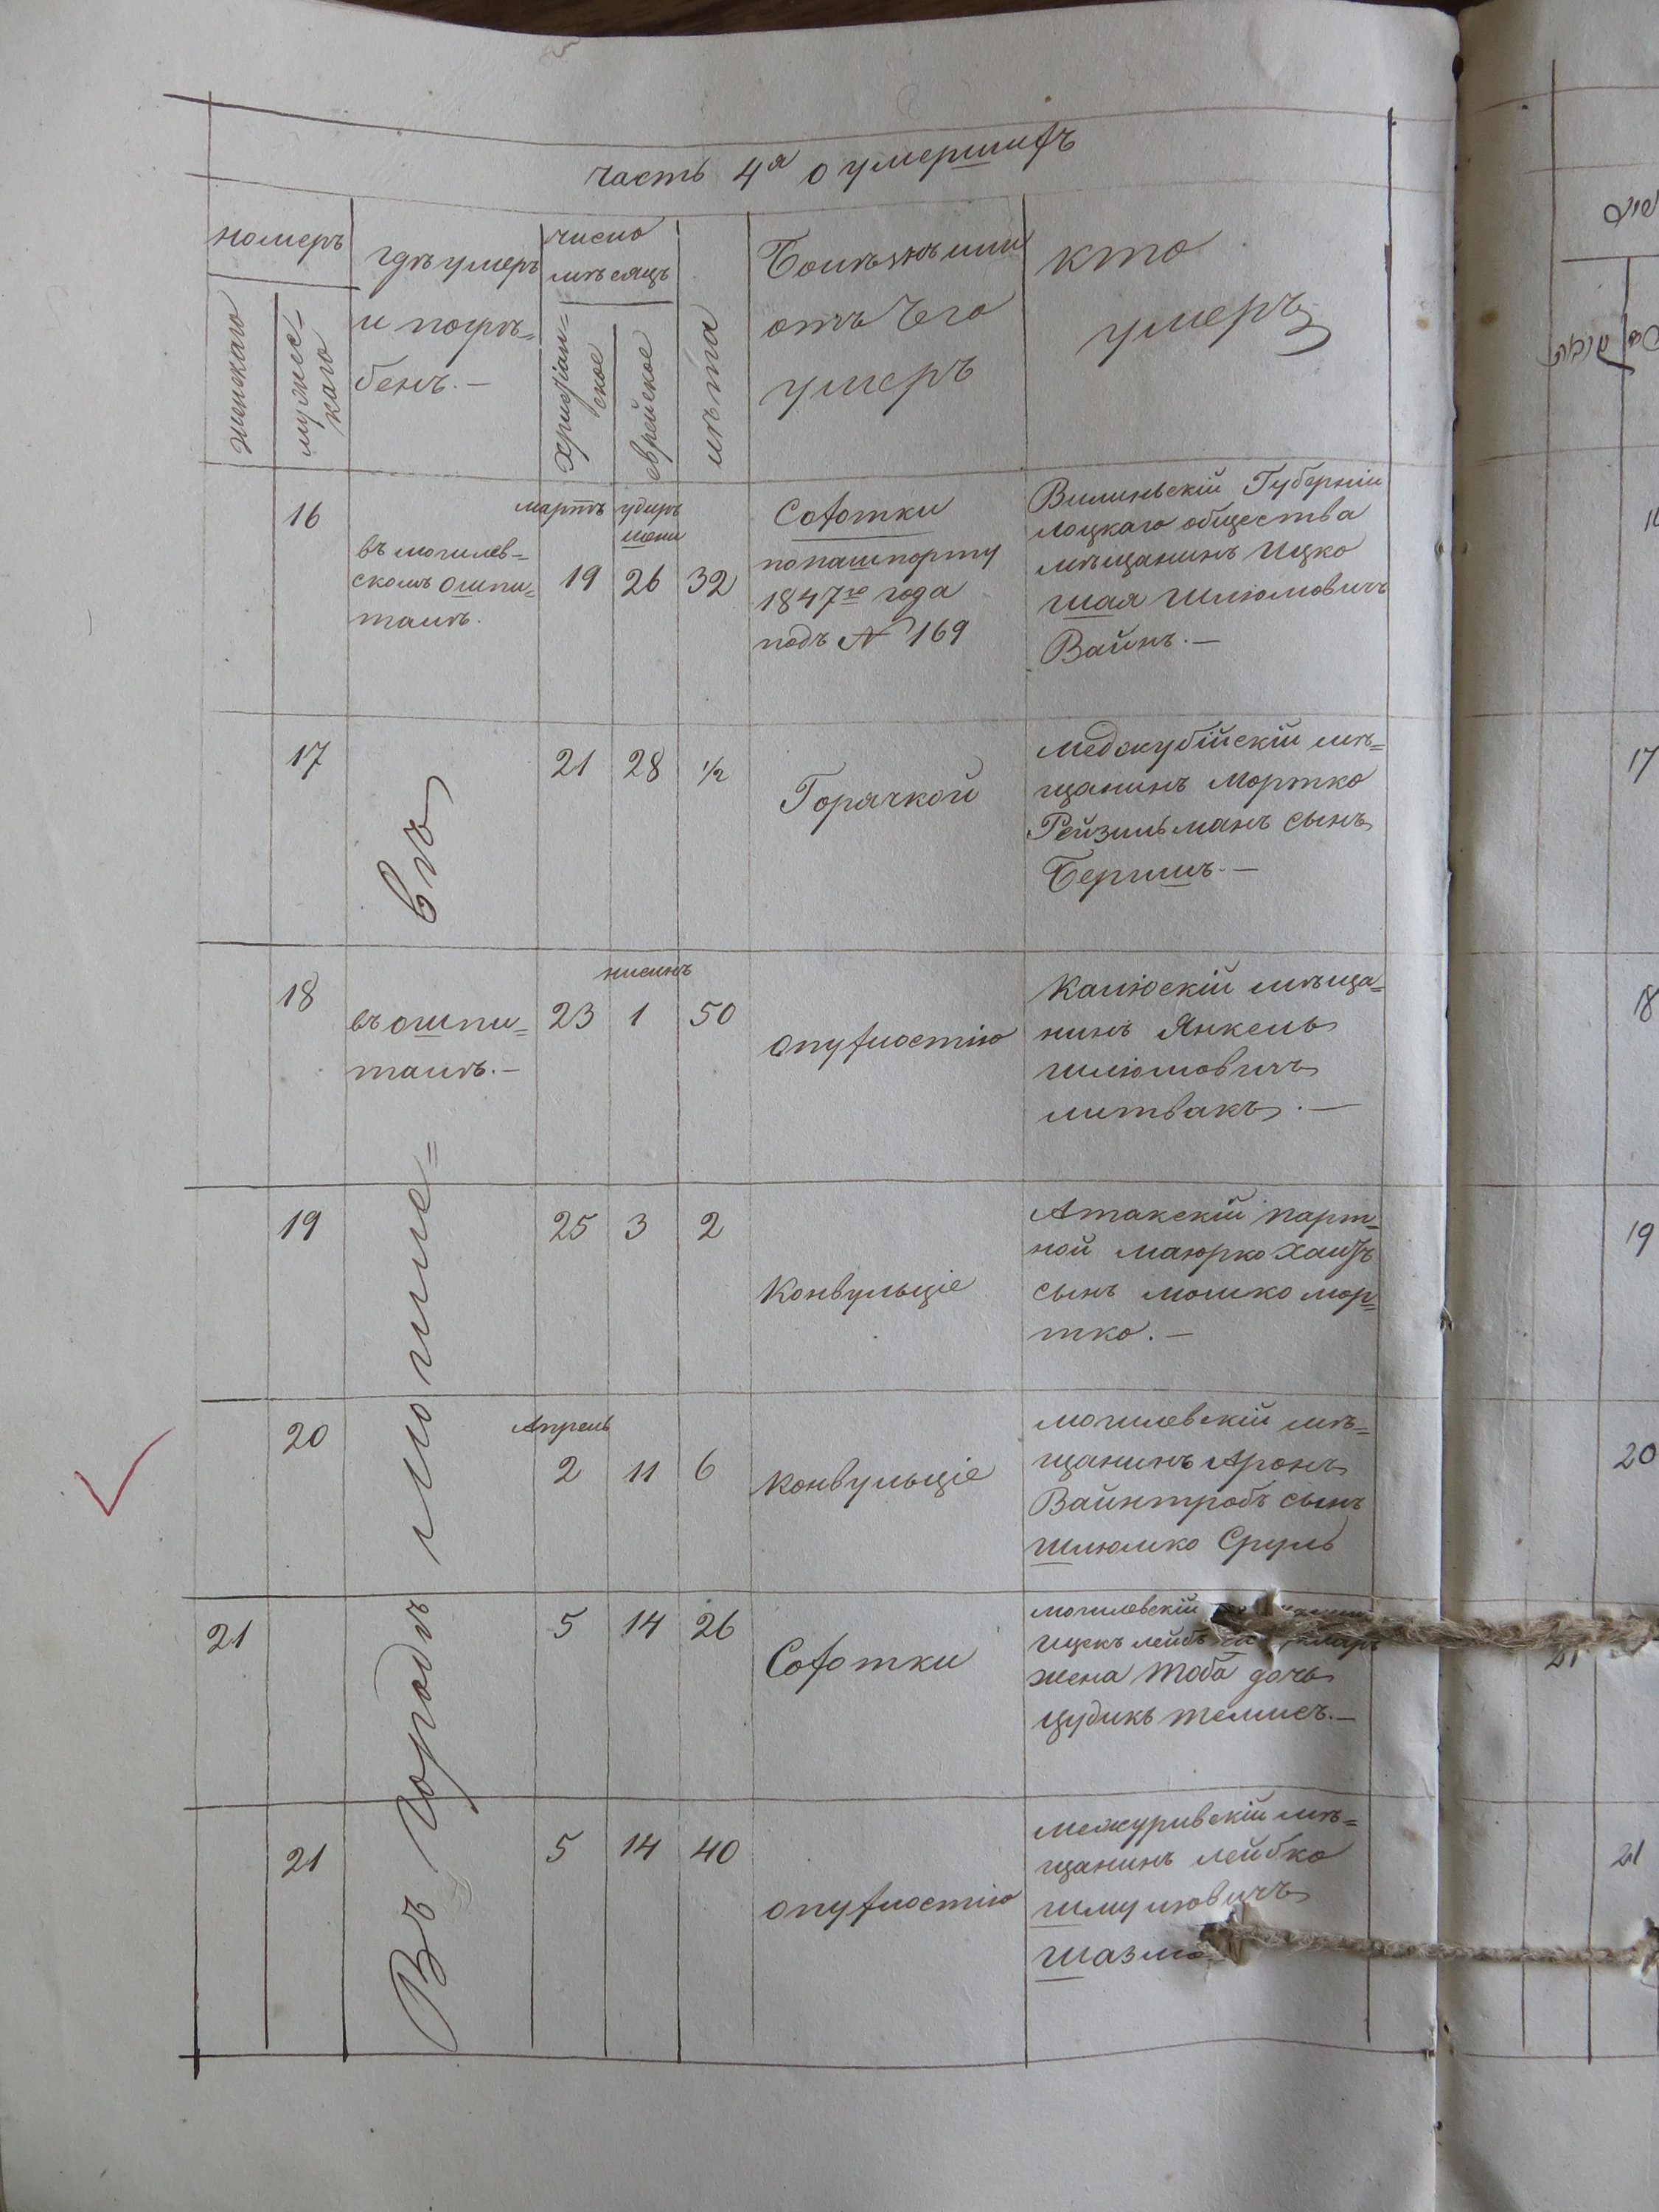 часть 4я о умершихъ
номеръ
женскаго
мужес-
каго
гдѣ умеръ
и погрѣ=
бенъ.—
число
мѣсяцъ
христіан=
ское
еврейское
лѣта
Болѣзнь или
отъ чего
умеръ
кто
умеръ
16
въ могилев=
скомъ ошпи=
талѣ.
мартъ
19
26
32
Сохотки
по пашпорту
1847го года
подъ № 169
Вилиньскій Губерніи
лоцкаго общества
мѣщанинъ Ицко
Шая Шлюмовичъ
Вайнъ.—
17
21
28
1/2
Горячкой
Меджубійскій мѣ=
щанинъ Мортко
Рейзильманъ сынъ
Бершъ.—
18
въ ошпи=
талѣ.—
23
нисинъ
1
50
опухлостію
Калюскій мѣща=
нинъ Янкель
шлюмовичъ
литвакъ.—
19
25
3
2
Конвульціе
Атакскій парт=
ной маюрко Хаитъ
сынъ мошко мор=
тко.—
20
Апрель
2
11
6
Конвульціе
могилевскій мѣ=
щанинъ Аронъ
Вайнтробъ сынъ
шлюмко Сруль
21
5
14
26
Сохотки
могилевскій
Ицекъ лейбъ
жена тоба дочь
цудикъ телисъ.—
21
5
14
40
опухлостію
межуривскій мѣ=
щанинъ лейбко
шмулювичъ
Въ городѣ могиле=
въ
17
18
19
20
21
21